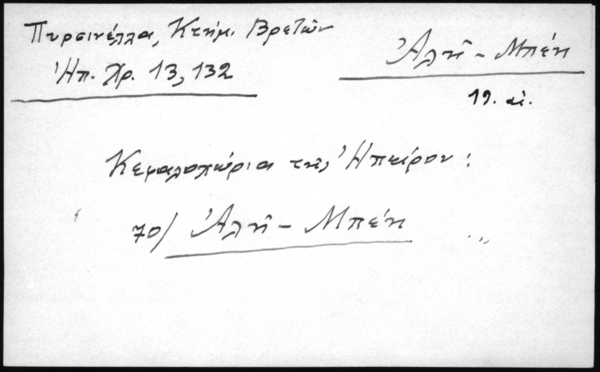 Πυρσινέλλα, Κτήμ. Βρετῶν
Ἠπ. Χρ. 13, 132
Ἀλῆ - Μπέη
19. αἰ.
Κεφαλοχώρια τῆς Ἠπείρου:
70) Ἀλῆ - Μπέη ...